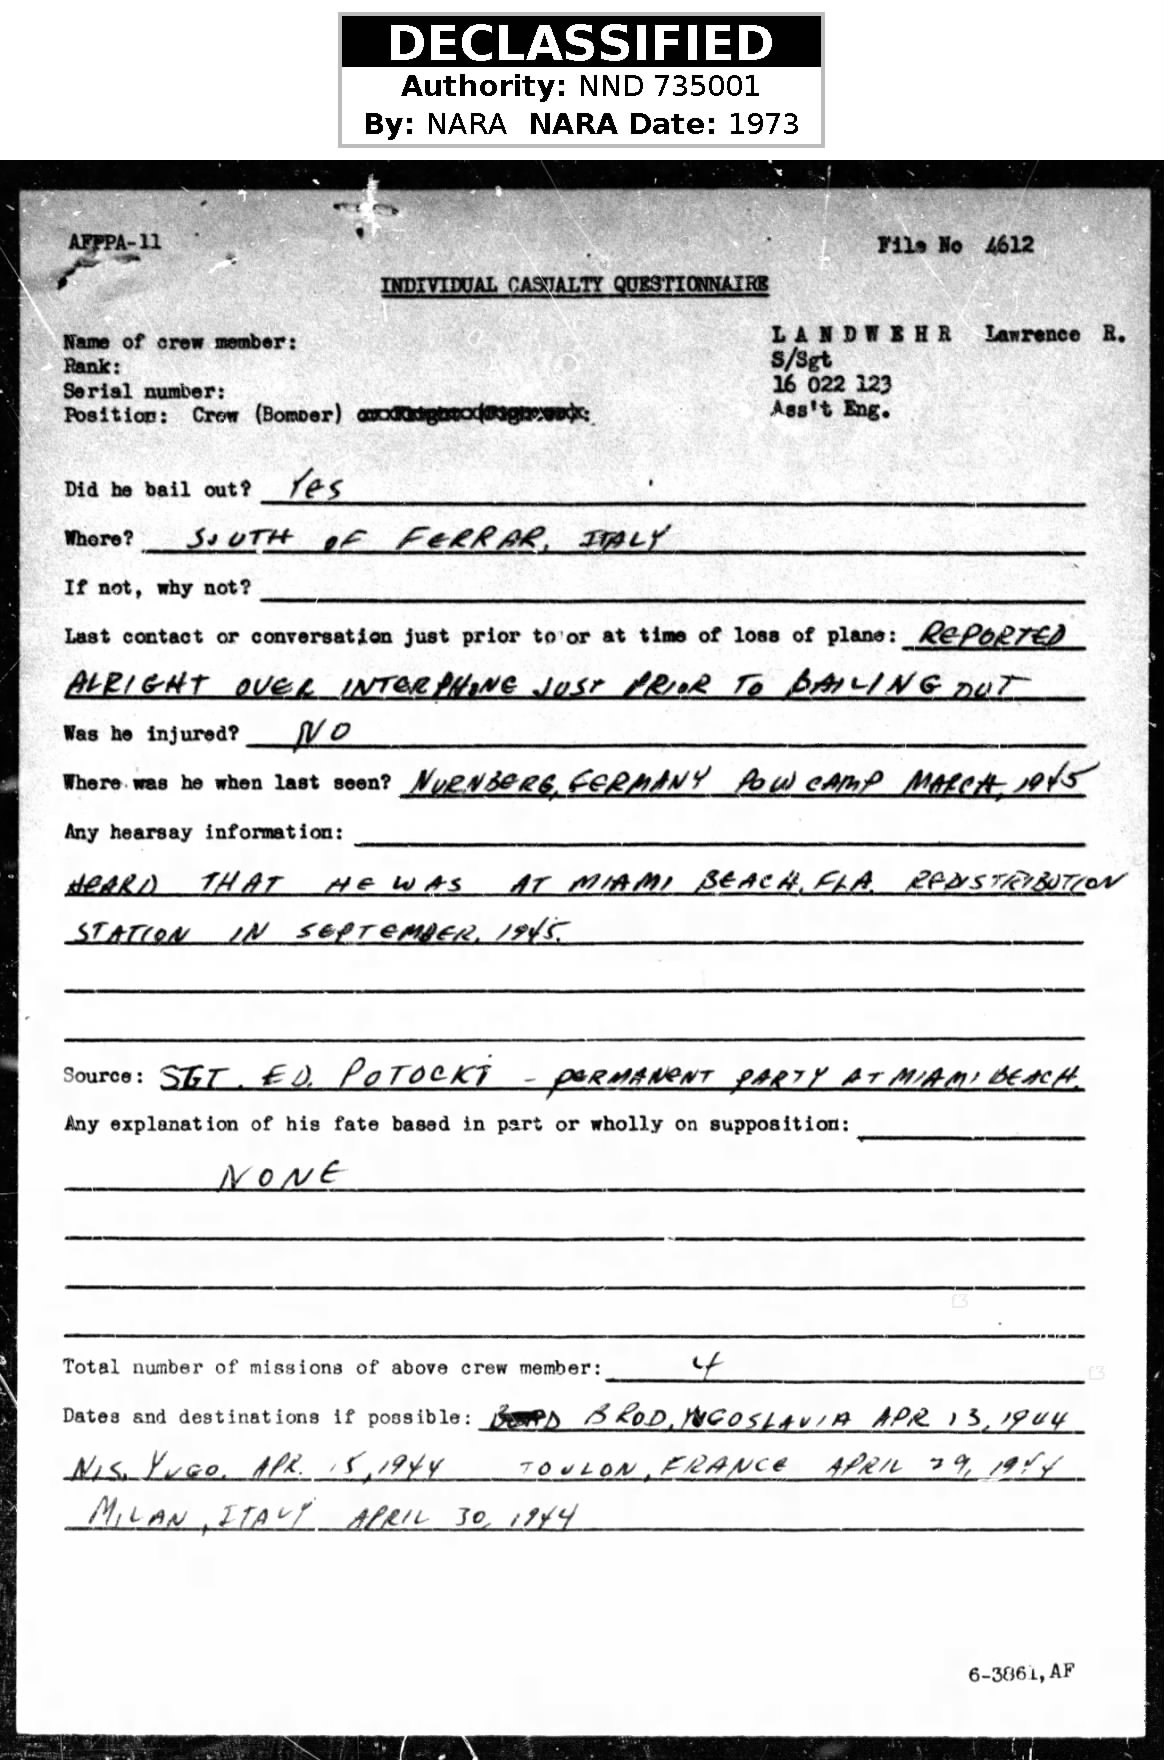 DECLASSIFIED
Authority: NND 735001
By: NARA NARA Date: 1973
AFPPA-11
File No 4612
INDIVIDUAL CASUALTY QUESTIONNAIRE
Name of crew member: L A N D W E H R Lawrence R.
Rank: S/Sgt
Serial number: 16 022 123
Position: Crew (Bomber) Ass't Eng.
Did he bail out? Yes
Where? SOUTH OF FERRAR, ITALY
If not, why not?
Last contact or conversation just prior to or at time of loss of plane: REPORTED
ALRIGHT OVER INTERPHONE JUST PRIOR TO BAILING OUT
Was he injured? NO
Where was he when last seen? NURNBERG, GERMANY POW CAMP MARCH, 1945
Any hearsay information:
HEARD THAT HE WAS AT MIAMI BEACH, FLA. REDISTRIBUTION
STATION IN SEPTEMBER, 1945.
Source: SGT. ED. POTOCKI - PERMANENT PARTY AT MIAMI BEACH.
Any explanation of his fate based in part or wholly on supposition:
NONE
Total number of missions of above crew member: 4
Dates and destinations if possible: BROD, YUGOSLAVIA APR 13, 1944
NIS, YUGO. APR. 15, 1944 TOULON, FRANCE APRIL 29, 1944
MILAN, ITALY APRIL 30, 1944
6-3861, AF